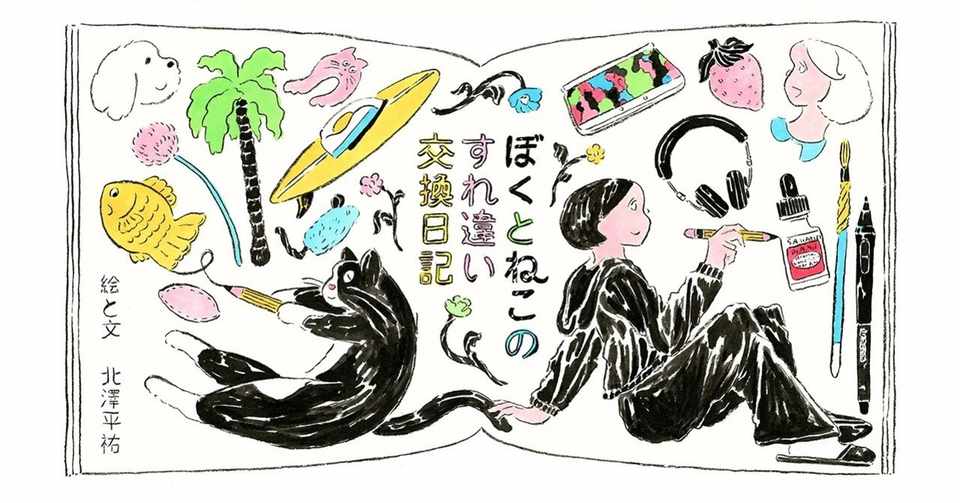 ぼくとねこの
すれ違い
交換日記
絵と文 北澤平祐